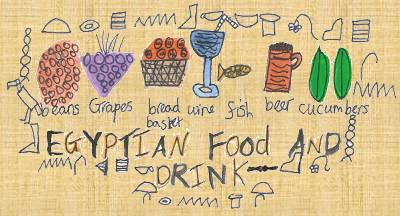 beans Grapes bread wine fish beer cucumbers
basket
EGYPTIAN FOOD AND
DRINK